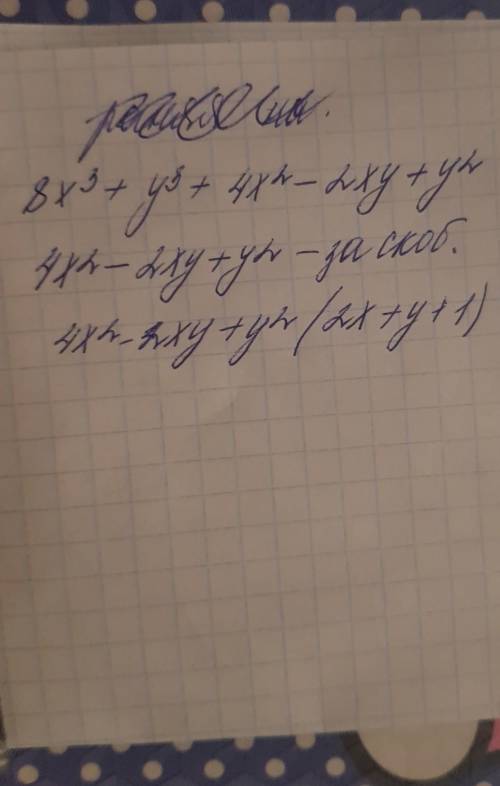 8x³ + y³ + 4x² - 2xy + y²
4x² - 2xy + y² - за скоб.
4x² - 2xy + y² (2x + y + 1)